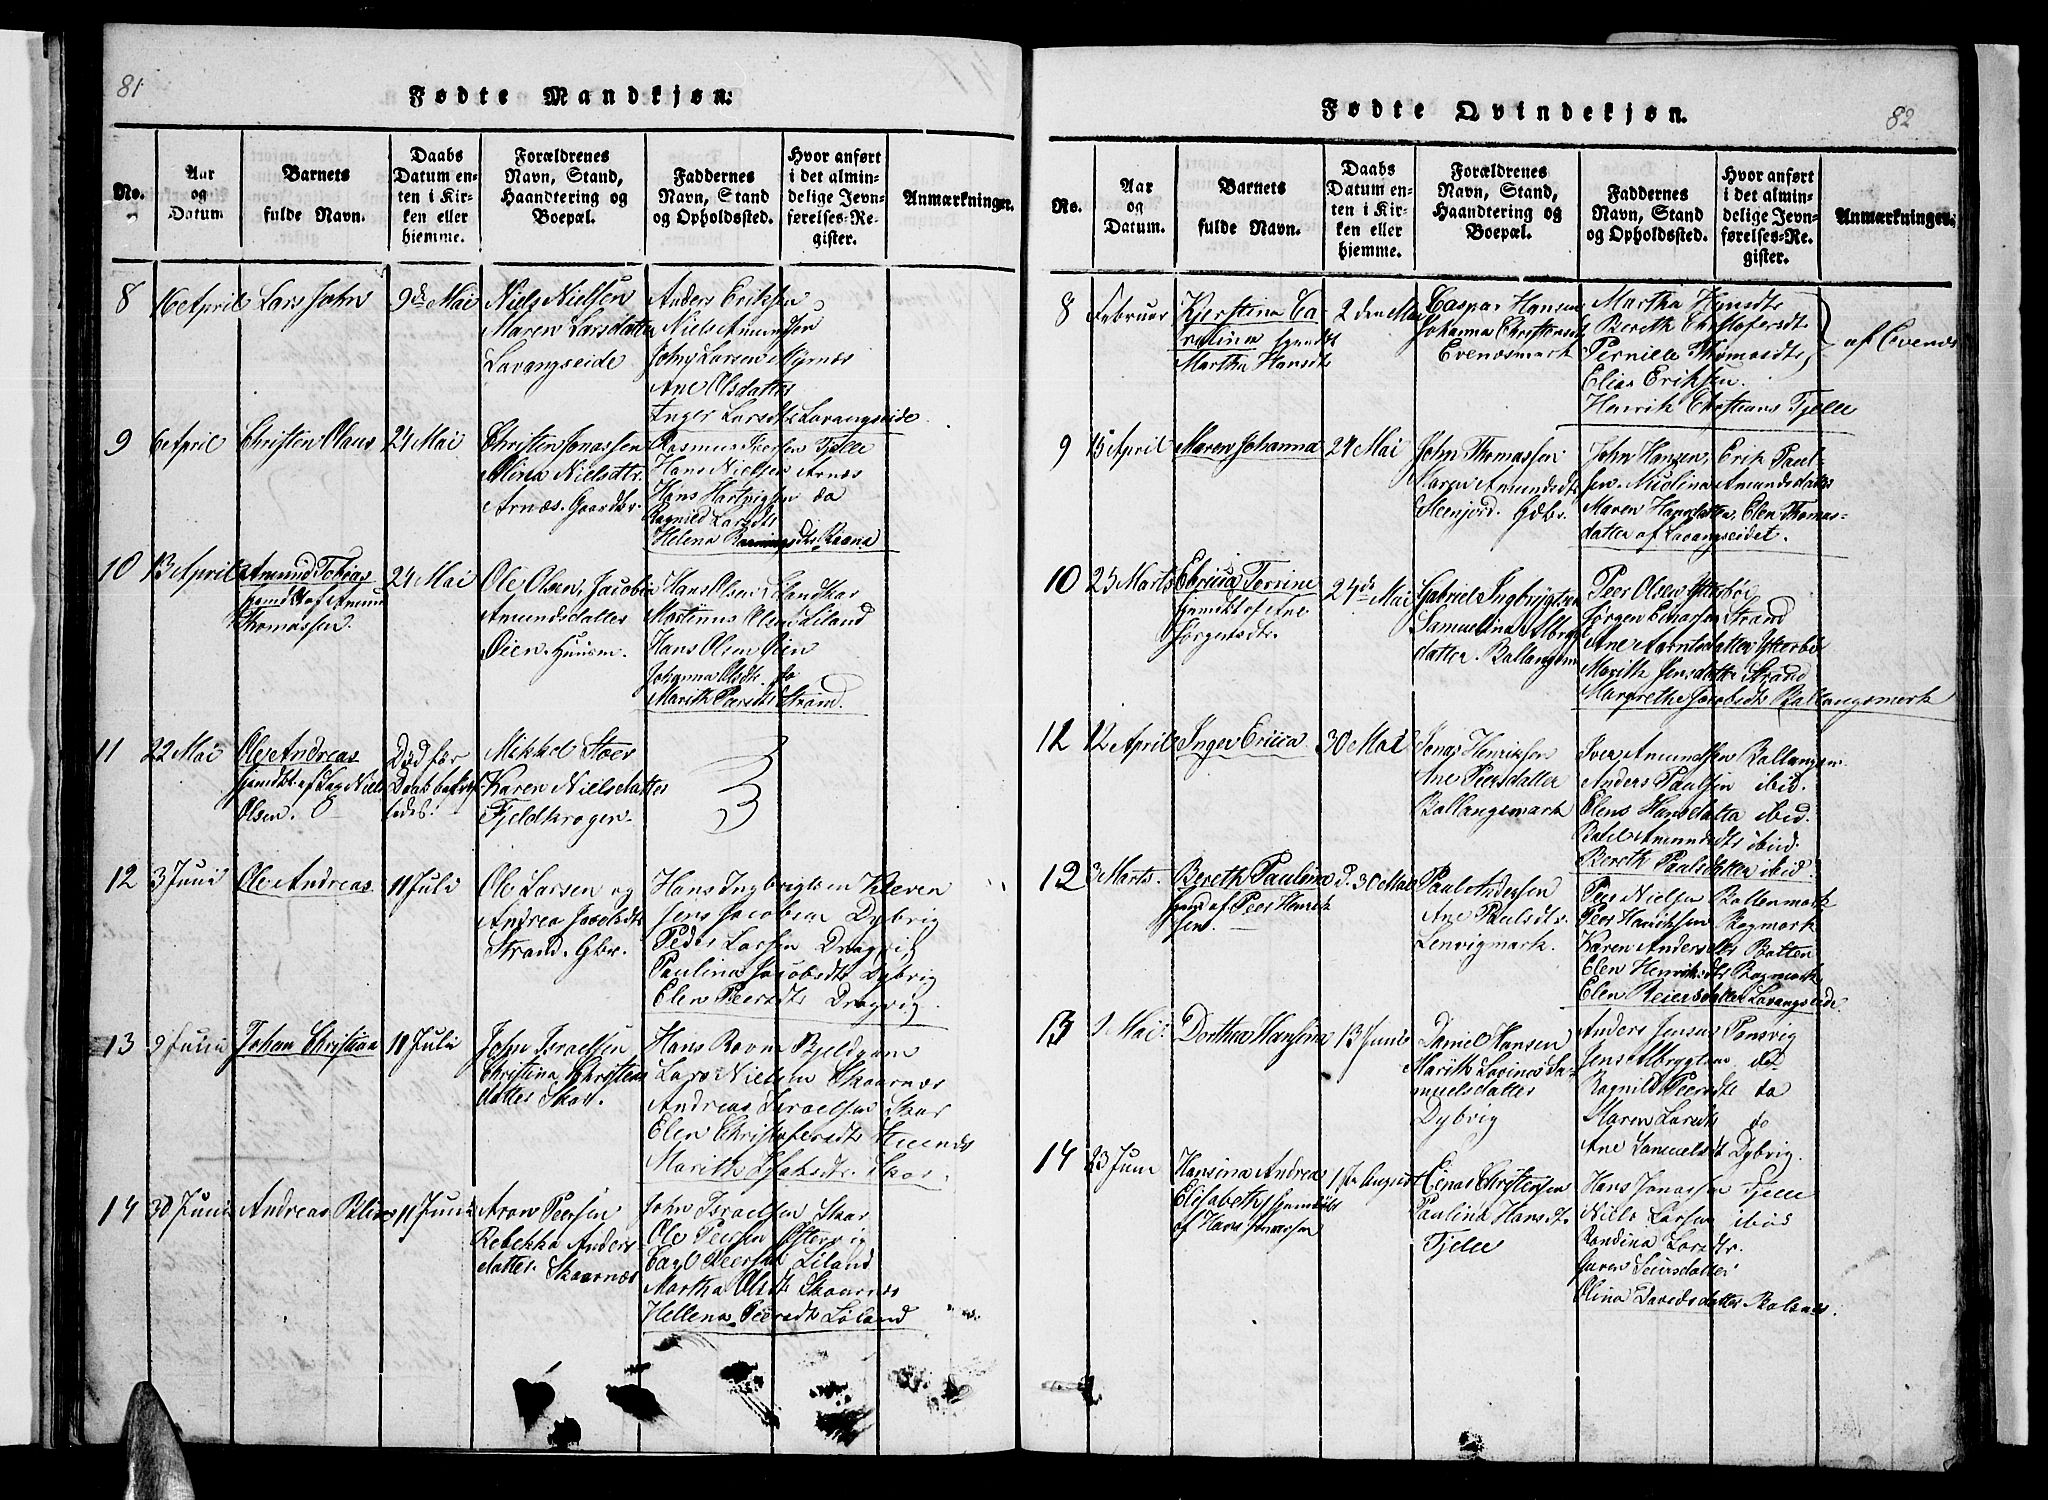 81
Fødte Mandkjøn.
No.
Aar
og
Datum
Barnets
fulde Navn.
Daabs
Datum en-
ten i Kir-
ken eller
hiemme.
Forældrenes
Navn, Stand,
Haandtering og
Boepæl.
Faddernes
Navn, Stand
og Opholdssted.
Hvor anført
i det almin-
delige Jevn-
førelses-Re-
gister.
Anmærkninger.
8
16 April
Lars John
9de Mai
Niels Nielsen
Maren Larsdatter
Lavangseide
Anders Eriksen
Niels Amundsen
John Larsen Myrnæs
Ane Olsdatter
Inger Larsdtr Lavangseide
9
6 April
Christen Olaus
24 Mai
Christen Jonassen
Nielsdtr.
Arnæs. Gaardbr.
Rasmus Fjelle
Hans Nielsen Arnæs
Hans Hartvigsen do
Ragnild Larsdtr
Helena
10
13 April
Amund Tobias
hjemdøbt af Amun
Thomassen.
24 Mai
Ole Olsen, Jacobin
Amundsdatter
Øien. Huusm.
Hans Olsen Liland
Martinus Olsen Liland
Hans Olsen Øien
Johanna Olsdtr. do
Marith Peersdtr Strand.
11
22 Mai
Ole Andreas
hjemdøbt af Niels
Olsen.
Død før
Daab
ledes.
Mikkel
Karen Nielsdatter
Fjeldkrogen
12
3 Juni
Ole Andreas.
11 Juli
Ole Larsen og
Andrea
Strand. Gbr.
Hans Ingbrigtsen Kleven
Jens Jacobsen Dybvig
Peder Larsen Dragvig
Paulina Jacobsdtr Dybvig
Elen Peersdtr Dragvig
13
9 Juni
Johan Christian
11 Juli
John Israelsen
Christina Christens
datter Skar.
Hans Ravn
Lars Nielsen Skaarnæs
Andreas Israelsen Skar
Elen Christofersdtr
Marith Skar.
14
30 Juni
Andreas
11 Juli
Aron Peersen
Rebekka Anders
datter Skaarnæs
John Israelsen Skar
Ole Peersen Østervig
Carl Peersen Liland
Martha Olsdtr Skaarnæs
Hellena Peersdtr Liland
82
Fødte Qvindekjøn.
No.
Aar
og
Datum.
Barnets
fulde Navn.
Daabs
Datum en-
ten i Kir-
ken eller
hjemme.
Forældrenes
Navn, Stand,
Haandtering og
Boepæl.
Faddernes
Navn, Stand
og Opholdssted.
Hvor anført
i det almin-
delige Jevn-
førelses-Re-
gister.
Anmærkninger.
8
Februar
Kjerstina Ca-
rolina
Martha Hansdtr
2den Mai
Caspar Hansen
Johanna Christensdtr
Evenæsmark
Martha
Bereth Christofersdtr
Pernille Thomasdtr
Elias Eriksen.
Henrik Christians Fjelle
af Evenæs
9
15 April
Maren Johanna
24 Mai
John Thomassen
Maren Amundsdtr
Steenjord. Gbr.
John Hansen, Erik Paul-
sen. Amundsdatter
Maren Hansdatter, Elen Thomas-
datter af Lavangseidet.
10
25 Marts
Ericia Torine
hjemdøbt af Ane
Jørgensdtr.
24de Mai
Gabriel Ingbrigtsen
Samuelina Albrigts
datter. Ballangsm
Peer Olsen Ytterbøe
Jørgen Einarsen Strand
Ane Aarntsdatter Ytterbøe
Marith Jensdatter Strand
Margrethe Jacobsdtr Ballangsmark
12
12 April
Inger Ericia
30 Mai
Jonas Henriksen
Ane Peersdatter
Ballangsmark
Iver Amundsen Ballangsm.
Anders Paulsen ibid.
Elens Hansdatter ibid.
Amundsdtr ibid.
Bereth Paulsdatter ibid.
12
3 Marts.
Bereth Paulina
af Peer Henrik
sen.
d. 30 Mai
Paul Andersen
Ane Paulsdtr.
Lenvigmark.
Peer Nielsen Bottenmark
Peer Henriksen Bogmark
Karen Andersdtr Botten
Elen Henriksdtr Bogmark
Elen Reiersdatter Lavangseide
13
1 Mai.
Dorthea Hansina
13 Juni
Daniel Hansen
Marith Lovina Sa-
muelsdatter
Dybvig
Anders Jensen Ponsvig
Jens Albrigtsen do
Ragnild Peersdtr do
Maren Larsdtr do
Ane Samuelsdtr Dybvig.
14
23 Juni
Hansina Andrea
Elisabeth hjemdøbt
af Hans Jonassen
1ste August
Einar Christensen
Paulina Hansdtr.
Fjelle
Hans Jonassen Fjelle
Niels Larsen ibid
Randina Larsdtr.
Olina